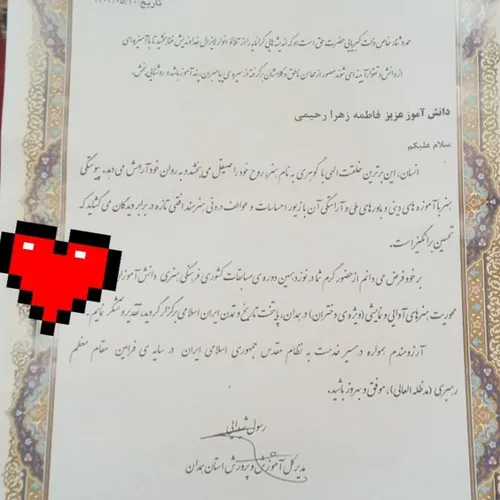 حمد و ثنا، خاص ذات کبریایی حضرت حق است او که اندیشه های گرانمایه را از تلالو انوار لایزال خداوندیش
از دانش و تقوا، آیینه ای شوند
دانش آموز عزیز فاطمه زهرا رحیمی
سلام علیکم
انسان، این برترین خلقت الهی با گوهری به نام هنر، روح خود را صیقل می بخشد و به روان خود آرامش می دهد، پیوستگی
هنر با آموزه های دینی و باورهای ملی و آراستگی آن با زیور احساسات و عواطف درونی هنرمند افقی تازه در برابر دیدگان می گشاید که
تحسین برانگیز است.
بر خود فرض می دانم از حضور گرم شما در نوزدهمین دوره ی مسابقات کشوری فرهنگی هنری دانش آموزا
محوریت هنرهای آوایی و نمایشی (ویژه ی دختران) در همدان، پایتخت تاریخ و تمدن ایران اسلامی برگزار گردید، تقدیر و تشکر نمایم.
آرزومندم همواره در مسیر خدمت به نظام مقدس جمهوری اسلامی ایران در سایه ی فرامین مقام معظم
رهبری (مدظله العالی)، موفق و بهروز باشید.
رسول شهدایی
مدیر کل آموزش و پرورش استان همدان